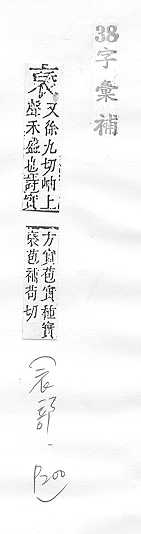 38字彙補
褎
又徐九切岫上
聲禾盛也詩實
方實苞實種實
褎苞補苟切
(衣部. P200)